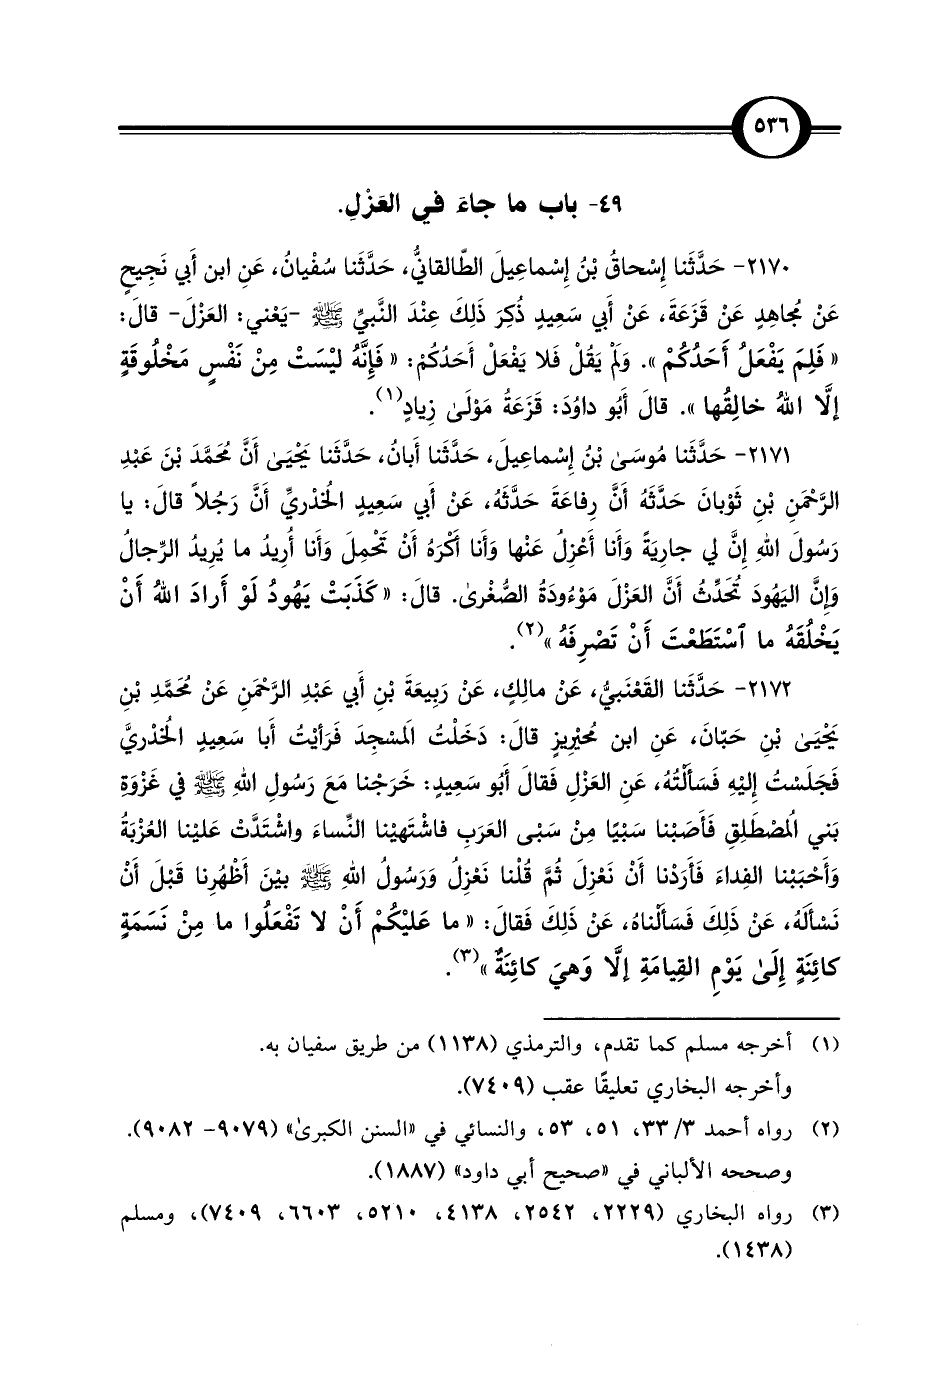 ٥٣٦
٤٩- باب ما جاءَ في العَزْلِ.
٢١٧٠- حَدَّثَنا إِسْحاقُ بْنُ إِسْماعِيلَ الطّالقانيُّ، حَدَّثَنا سُفْيانُ، عَنِ ابن أَبي نَجِيحٍ
عَنْ مُجاهِدٍ عَنْ قَزَعَةَ، عَنْ أَبي سَعِيدٍ ذُكِرَ ذَلِكَ عِنْدَ النَّبيِّ ﷺ -يَعْني: العَزْلَ- قالَ:
« فَلِمَ يَفْعَلُ أَحَدُكُمْ ». وَلَمْ يَقُلْ فَلا يَفْعَلْ أَحَدُكُمْ: « فَإِنَّهُ لَيْسَتْ مِنْ نَفْسٍ مَخْلُوقَةٍ
إِلَّا اللهُ خالِقُها ». قالَ أَبُو داوُدَ: قَزَعَةُ مَوْلَىٰ زِيادٍ(١).
٢١٧١- حَدَّثَنا مُوسَىٰ بْنُ إِسْماعِيلَ، حَدَّثَنا أَبانُ، حَدَّثَنا يَحْيَىٰ أَنَّ مُحَمَّدَ بْنَ عَبْدِ
الرَّحْمَنِ بْنِ ثَوْبانَ حَدَّثَهُ أَنَّ رِفاعَةَ حَدَّثَهُ، عَنْ أَبي سَعِيدٍ الخُدْريِّ أَنَّ رَجُلاً قالَ: يا
رَسُولَ اللهِ إِنَّ لي جارِيَةً وَأَنا أَعْزِلُ عَنْها وَأَنا أَكْرَهُ أَنْ تَحْمِلَ وَأَنا أُرِيدُ ما يُرِيدُ الرِّجالُ
وَإِنَّ اليَهُودَ تُحَدِّثُ أَنَّ العَزْلَ مَوْءُودَةُ الصُّغْرىٰ. قالَ: « كَذَبَتْ يَهُودُ لَوْ أَرادَ اللهُ أَنْ
يَخْلُقَهُ ما ٱسْتَطَعْتَ أَنْ تَصْرِفَهُ »(٢).
٢١٧٢- حَدَّثَنا القَعْنَبيُّ، عَنْ مالِكٍ، عَنْ رَبِيعَةَ بْنِ أَبي عَبْدِ الرَّحْمَنِ عَنْ مُحَمَّدِ بْنِ
يَحْيَىٰ بْنِ حَبّانَ، عَنِ ابن مُحَيْرِيزٍ قالَ: دَخَلْتُ المَسْجِدَ فَرَأَيْتُ أَبا سَعِيدٍ الخُدْريَّ
فَجَلَسْتُ إِلَيْهِ فَسَأَلْتُهُ، عَنِ العَزْلِ فَقالَ أَبُو سَعِيدٍ: خَرَجْنا مَعَ رَسُولِ اللهِ ﷺ في غَزْوَةِ
بَني المُصْطَلِقِ فَأَصَبْنا سَبْيًا مِنْ سَبْى العَرَبِ فاشْتَهَيْنا النِّساءَ واشْتَدَّتْ عَلَيْنا العُزْبَةُ
وَأَحْبَبْنا الفِداءَ فَأَرَدْنا أَنْ نَعْزِلَ ثُمَّ قُلْنا نَعْزِلُ وَرَسُولُ اللهِ ﷺ بَيْنَ أَظْهُرِنا قَبْلَ أَنْ
نَسْأَلَهُ، عَنْ ذَلِكَ فَسَأَلْناهُ، عَنْ ذَلِكَ فَقالَ: « ما عَلَيْكُمْ أَنْ لا تَفْعَلُوا ما مِنْ نَسَمَةٍ
كائِنَةٍ إِلَىٰ يَوْمِ القِيامَةِ إِلَّا وَهيَ كائِنَةٌ »(٣).
(١) أخرجه مسلم كما تقدم، والترمذي (١١٣٨) من طريق سفيان به.
وأخرجه البخاري تعليقًا عقب (٧٤٠٩).
(٢) رواه أحمد ٣/ ٣٣، ٥١، ٥٣، والنسائي في «السنن الكبرىٰ» (٩٠٧٩- ٩٠٨٢).
وصححه الألباني في «صحيح أبي داود» (١٨٨٧).
(٣) رواه البخاري (٢٢٢٩، ٢٥٤٢، ٤١٣٨، ٥٢١٠، ٦٦٠٣، ٧٤٠٩)، ومسلم
(١٤٣٨).